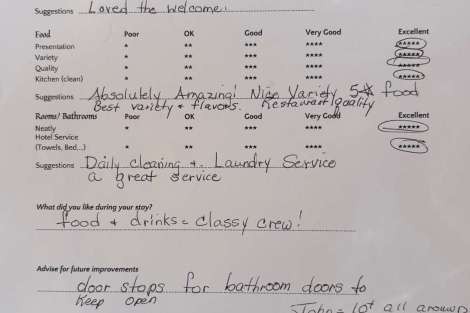 Suggestions Loved the welcome!
Food Poor OK Good Very Good Excellent
Presentation * ** *** **** *****
Variety * ** *** **** *****
Quality * ** *** **** *****
Kitchen (clean) * ** *** **** *****
Suggestions Absolutely Amazing! Nice Variety 5★ food
Best variety + flavors. Restaurant quality
Rooms/ Bathrooms Poor OK Good Very Good Excellent
Neatly * ** *** **** *****
Hotel Service
(Towels, Bed...) * ** *** **** *****
Suggestions Daily cleaning + Laundry Service
a great service
What did you like during your stay?
food + drinks = classy crew!
Advise for future improvements
door stops for bathroom doors to
keep open
John = 10+ all around